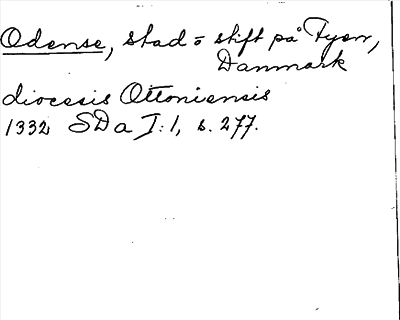 Odense, stad o stift på Fyen,
Danmark
diocesis Ottoniensis
1332 SDa I:1, s. 277.